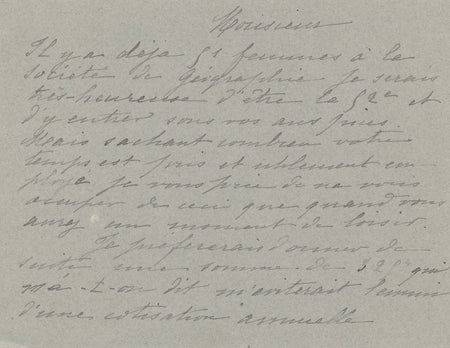 Monsieur
Il y a déja 51 femmes à la
société de géographie je serais
très-heureuse d'être la 52e et
d'y entrer sous vos auspices
Mais sachant combien votre
temps est pris et utilement em-
ployé je vous prie de ne vous
occuper de ceci que quand vous
aurez un moment de loisir.
Je préfererais donner de
suite une somme de 325 qui
m'a-t-on dit m'éviterait l'ennui
d'une cotisation annuelle